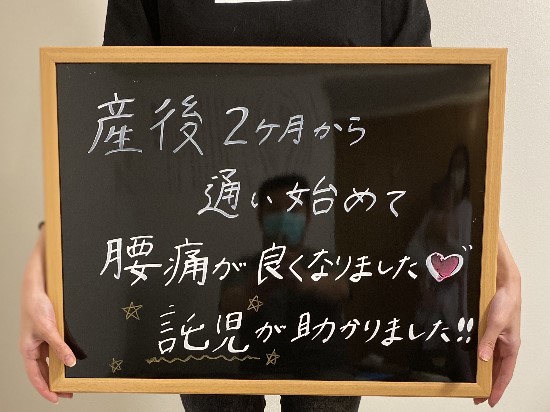 産後2ケ月から
通い始めて
腰痛が良くなりました
託児が助かりました!!